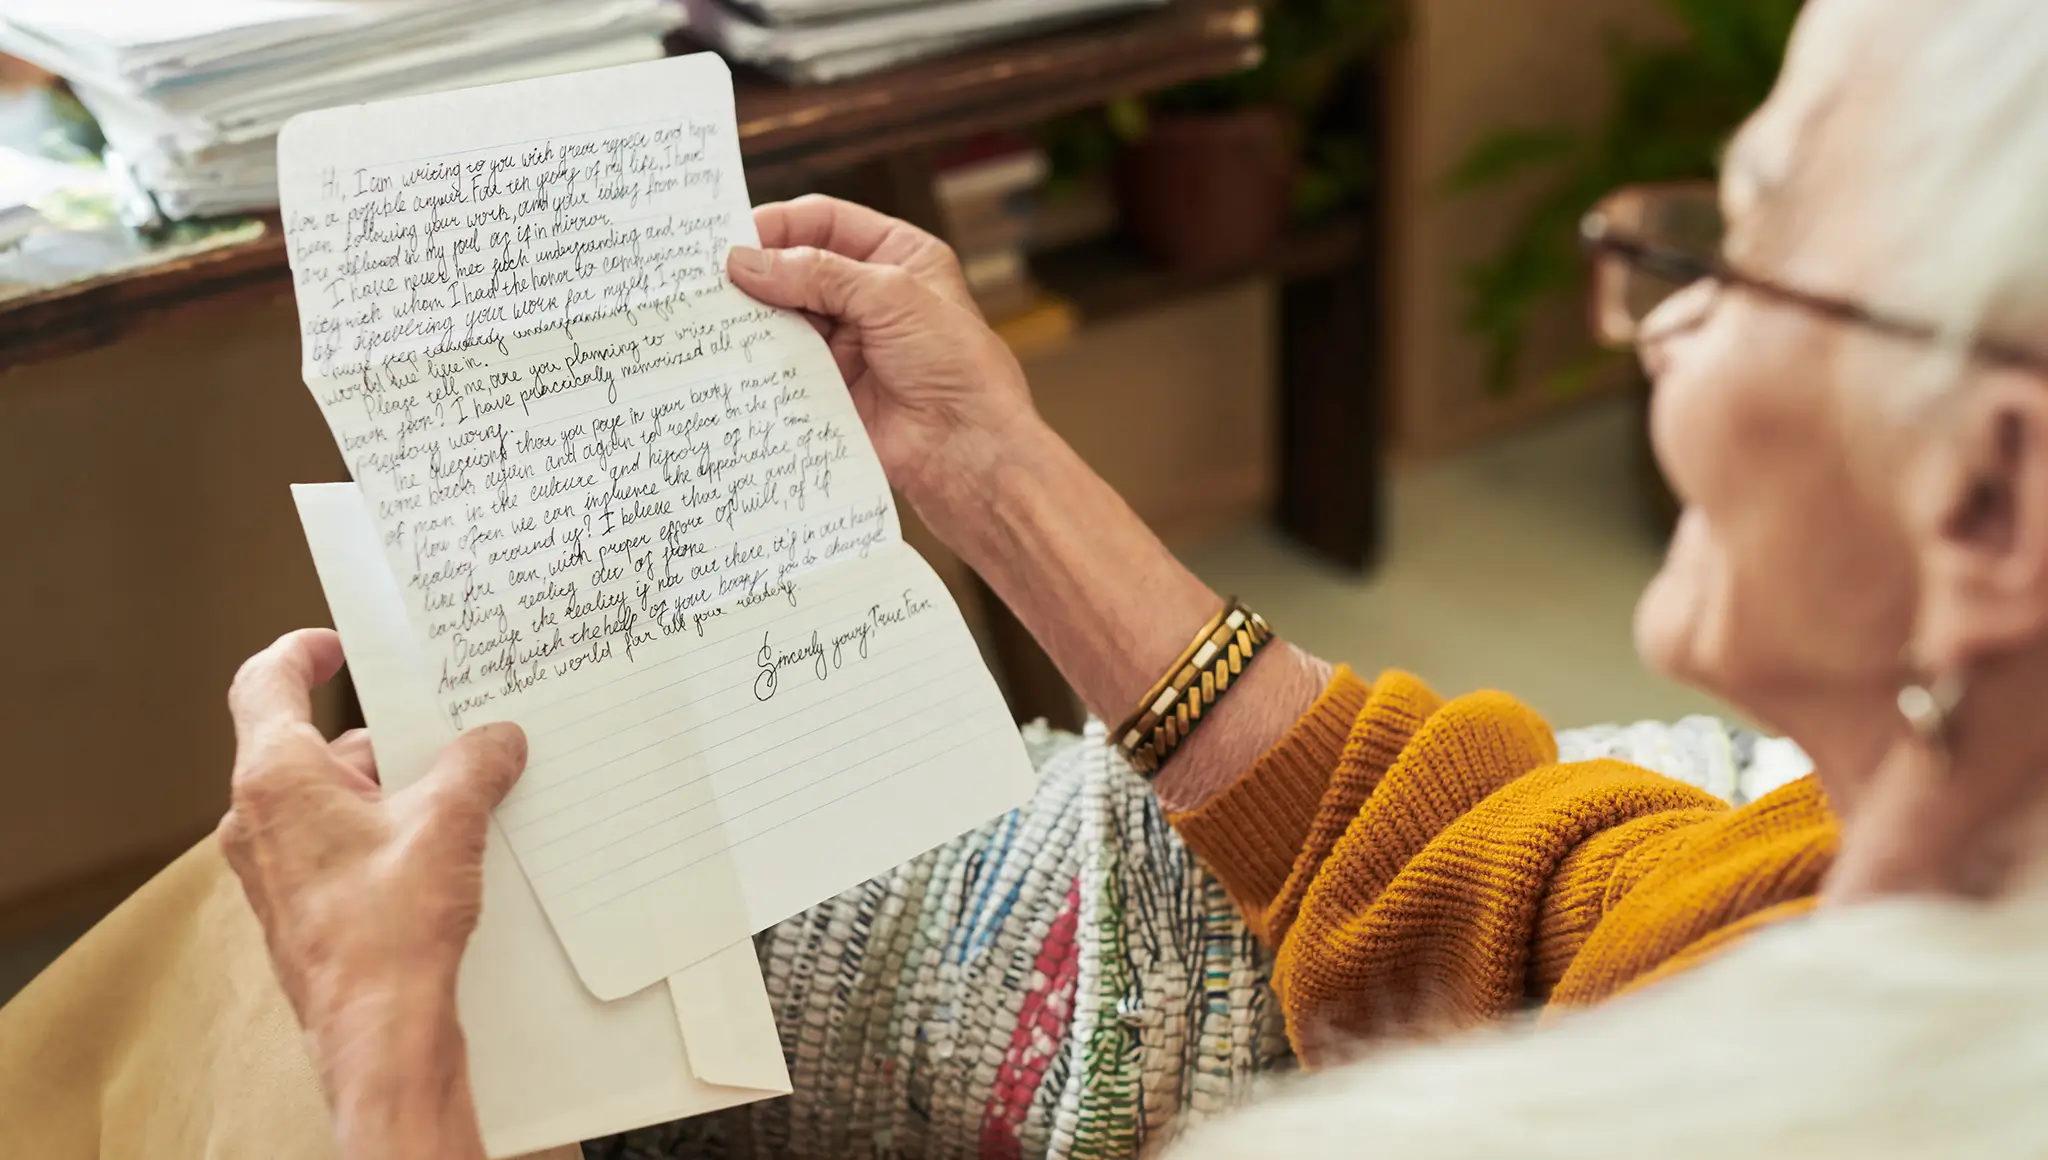 Hi, I am writing to you with great respect and hope
for a possible answer. For ten years of my life, I have
been following your work, and your ideas from books
are reflected in my soul as if in mirror.
I have never met such understanding and recipro
city with whom I had the honor to communicate, for
by discovering your work for myself, I took a
huge step towards understanding myself and
world we live in.
Please tell me, are you planning to write another
book soon? I have practically memorized all your
previous works.
The questions that you pose in your books make me
come back again and again to reflect on the place
of man in the culture and history of his time.
How often we can influence the appearance of the
reality around us? I believe that you and people
like you can, with proper effort of will, as if
carving reality out of stone.
Because the reality is not out there, it's in our heads
And only with the help of your books you do change
your whole world for all your readers.
Sincerly yours, True Fan.